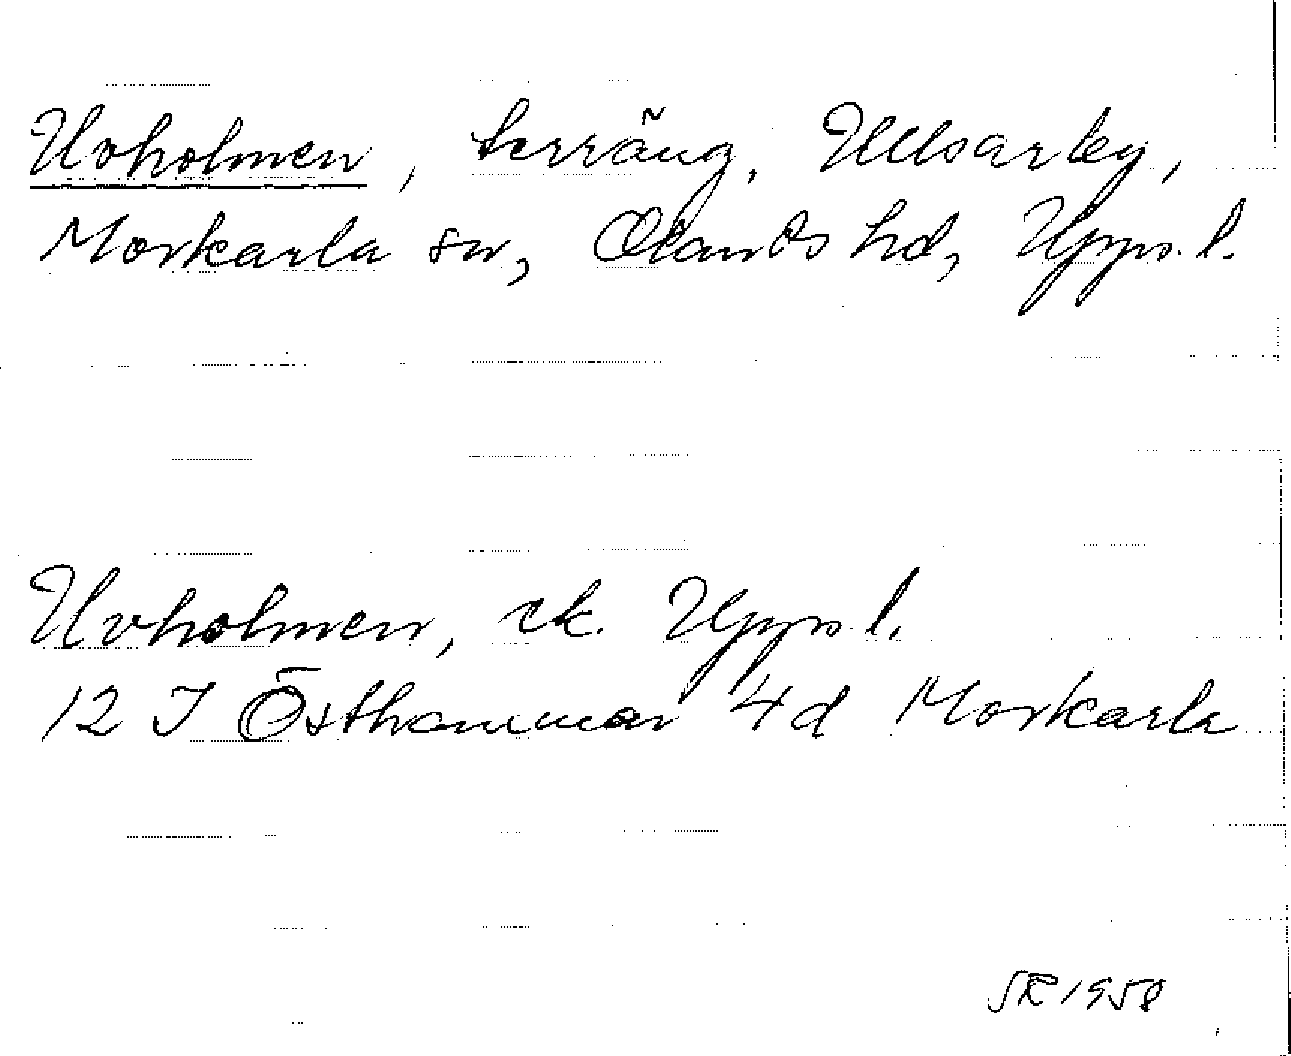 Uvholmen, terräng, Ullsarby,
Morkarla sn, Olands hd, Upps. l.
Uvholmen, ek. Upps l.
12 I Östhammar 4d Morkarla
SR 1958